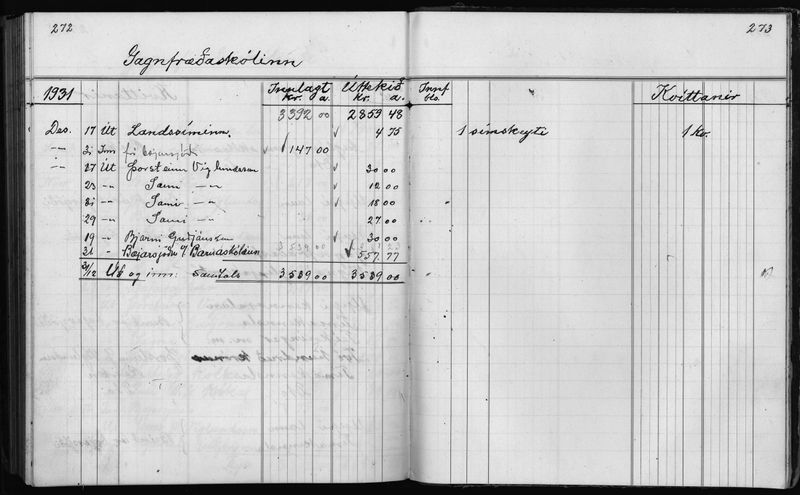 272
273
Gagnfræðaskólinn
1931 Innlagt Úttekið Innf Kvittanir
kr. a. kr. a. bls.
3392 00 2859 48
Des. 17 Út Landssíminn. 4 75 1 símskeyti 1 kr.
" 31 Inn frá bæjarsjóði 147 00
" 17 Út Þorsteinn Víglundsson 30 00
23 " Sami " 12 00
31 " Sami " 18 00
29 " Sami " 27 00
19 " Bjarni Guðjónsson 30 00
31 " Bæjarsjóður v/ Barnaskólans 557 77
31/12 Út og inn: samtals 3539 00 3539 00